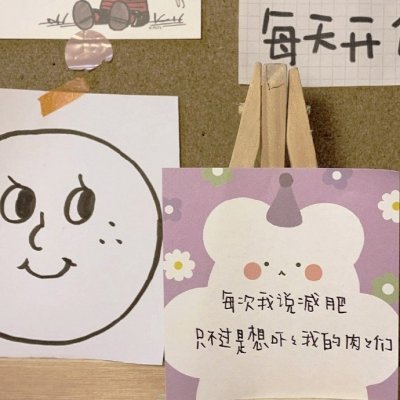 每天开
每次我说减肥
只不过是想吓々我的肉々们